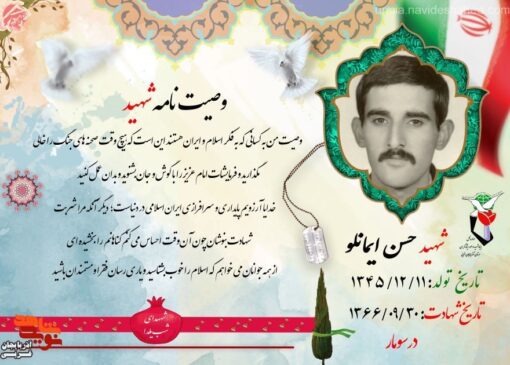 وصیت نامه شهید
وصیت من به کسانی که به فکر اسلام و ایران هستند این است که هیچ وقت صحنه های جنگ را خالی
نگذارید و فرمایشات امام عزیز را با گوش و جان بشنوید و بدان عمل کنید
خدایا آرزویم پایداری و سرافرازی ایران اسلامی در دنیاست؛ دیگر آنکه مرا شربت
شهادت بنوشان چون آن وقت احساس می کنم گناهانم را بخشیده ای
از همه جوانان می خواهم که اسلام را خوب بشناسید و یاری رسان فقرا و مستمندان باشید
شهید حسن ایمانلو
تاریخ تولد: ۱۳۴۵/۱۲/۱۱
تاریخ شهادت: ۱۳۶۶/۰۹/۳۰
در سومار
شهدای
شب یلدا
نوید شاهد
آذربایجان
غربی